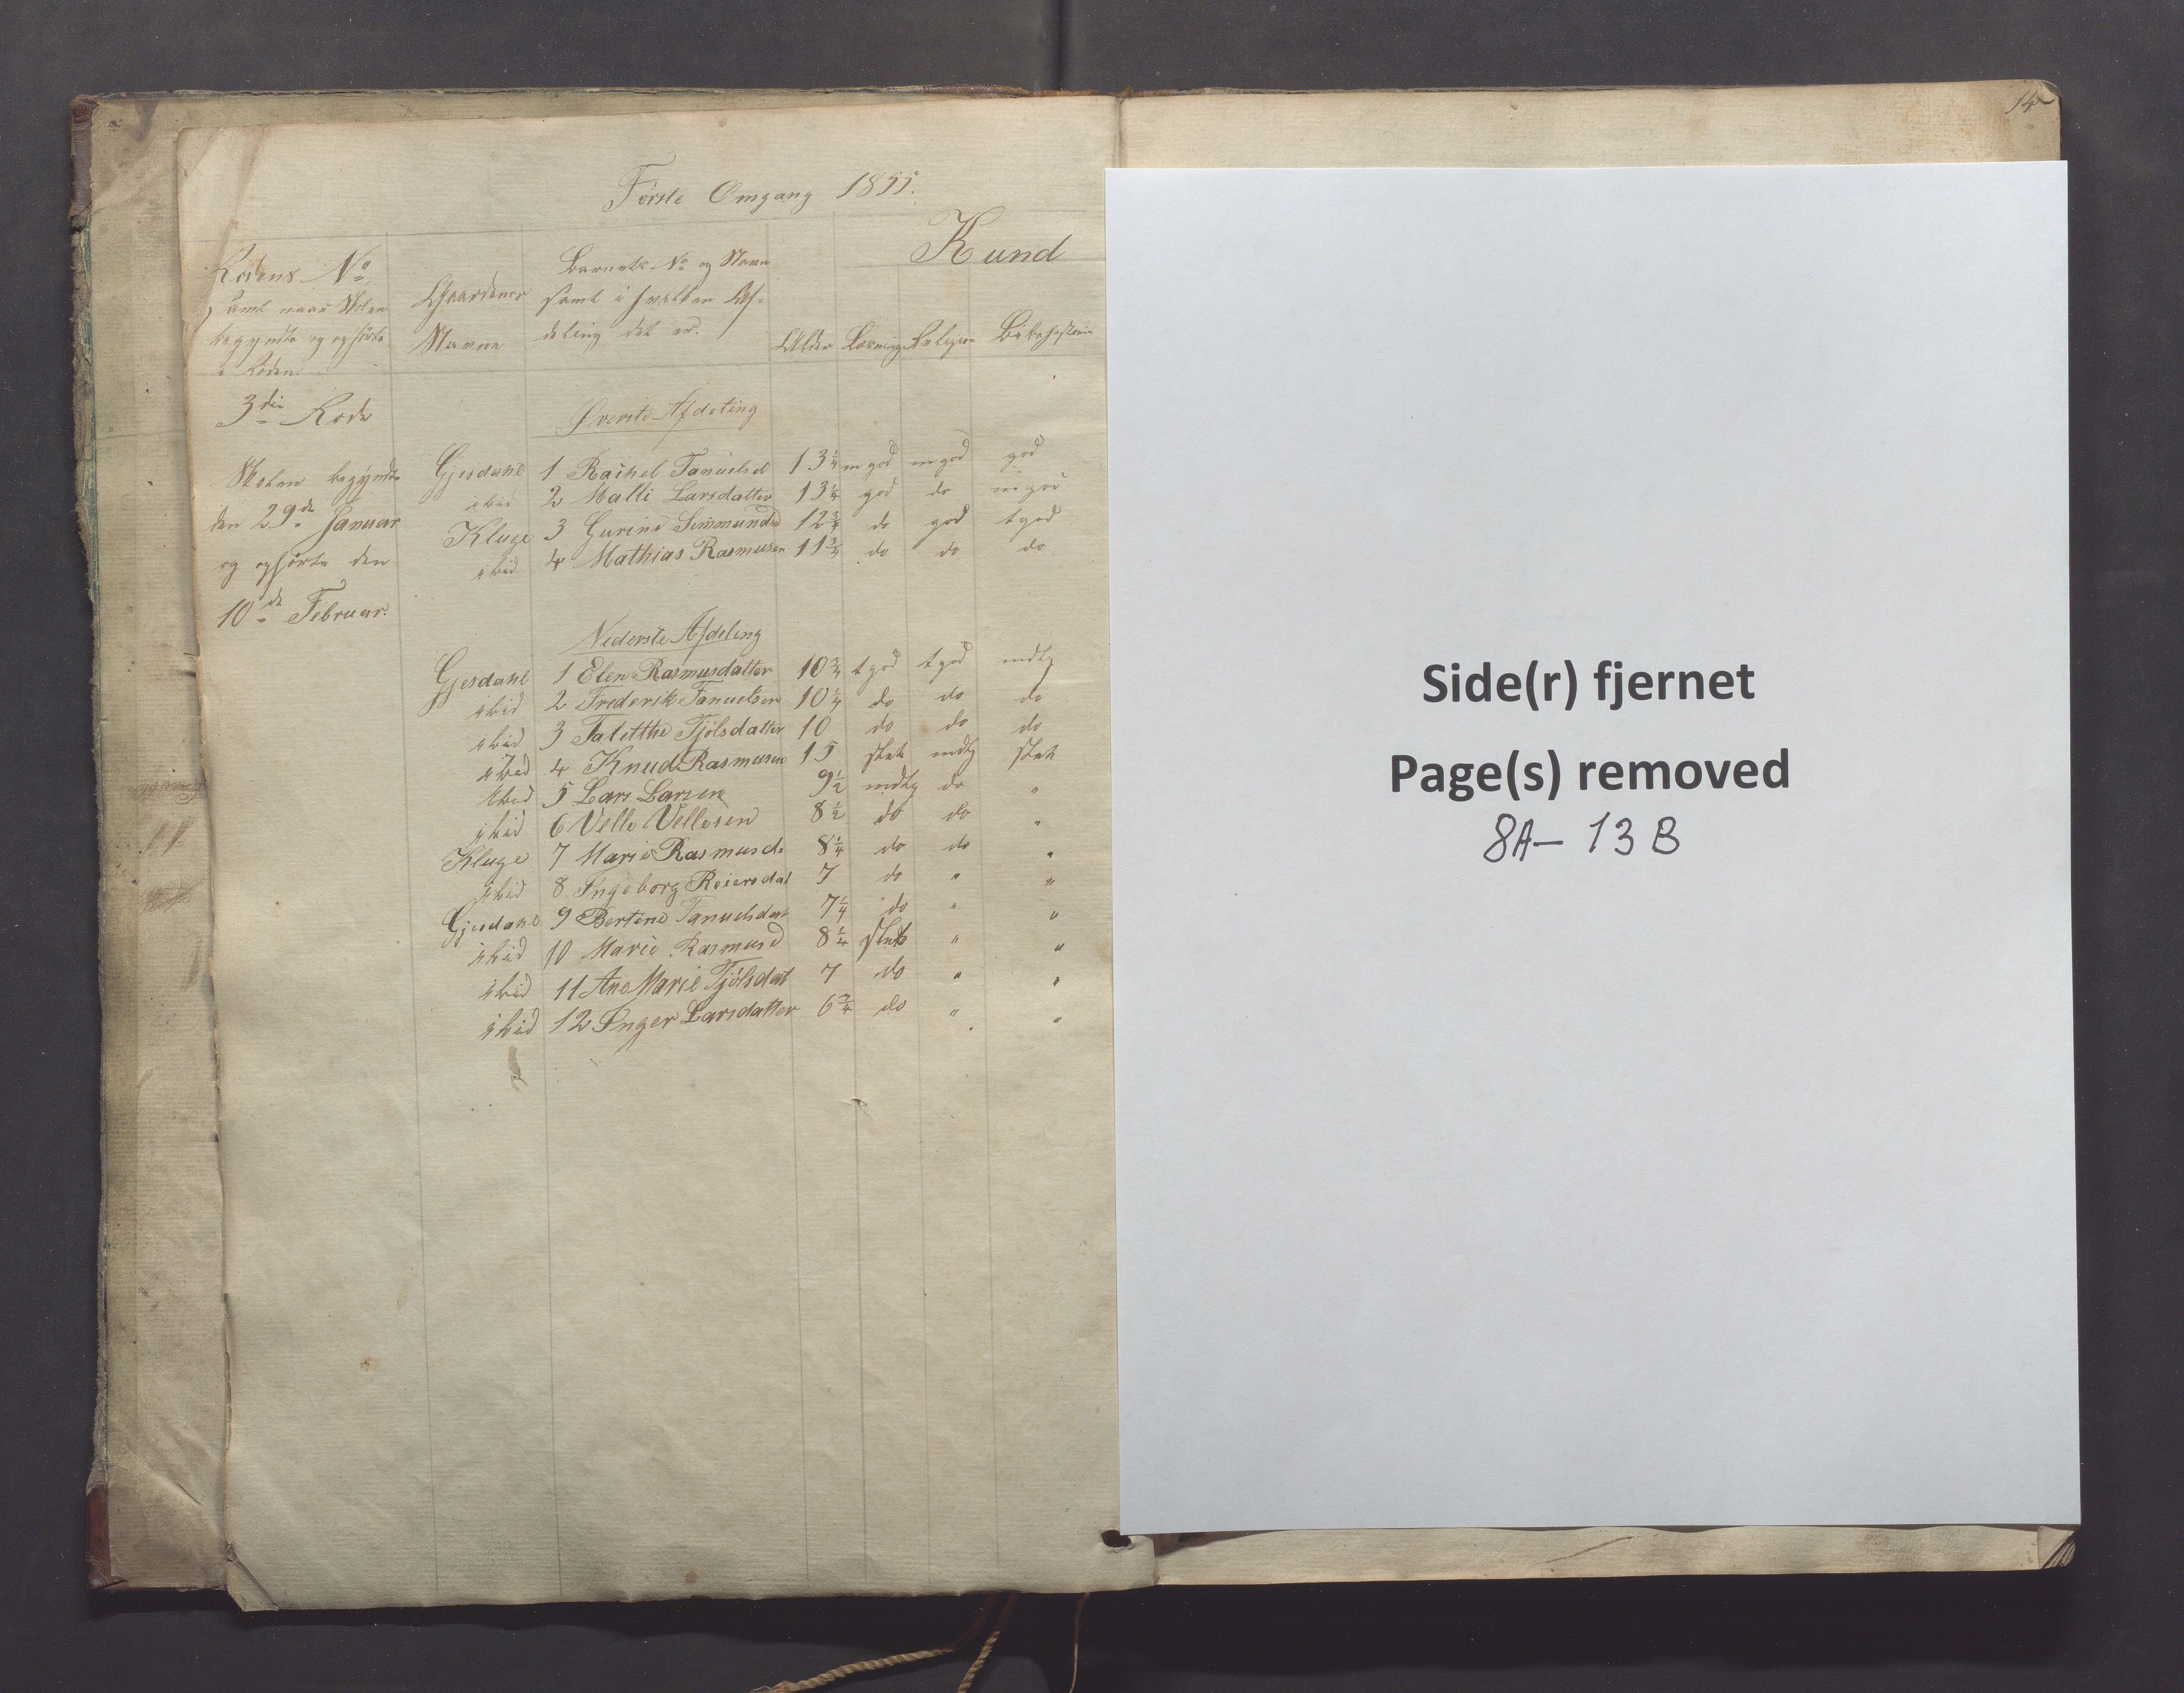 Første Omgang 1855.
Kund
Rodens No samt naar Skolen begyndte og ophørte i Roden.
Gaardenes Navne
Barnets No og Navn samt i hvilken Afdeling det er.
Alder
Læsning
Religion
Bibelhistorie
3die Rode
Øverste Afdeling
Skolen begyndte
den 29de Januar
og ophørte den
10de Februar.
Gjesdahl 1 Rachel Tanuelsd 13¼ mgod mgod god
ibid 2 Malli Larsdatter 13¼ god do mgod
Kluge 3 Gurine Simmundsd 12¾ do god tgod
ibid 4 Mathias Rasmusen 11¾ do do do
Nederste Afdeling
Gjesdahl 1 Elen Rasmusdatter 10¾ tgod tgod mdlg
ibid 2 Frederik Tanuelsen 10¼ do do do
ibid 3 Taletthe Tjølsdatter 10 do do do
ibid 4 Knud Rasmusen 15 slet mdlg slet
ibid 5 Lars Larsen 9½ mdlg do "
ibid 6 Velle Vellesen 8½ do do "
Kluge 7 Marie Rasmusd. 8¼ do do "
ibid 8 Ingeborg Reiersdat 7 do " "
Gjesdahl 9 Bertine Tanuelsdat 7¼ do " "
ibid 10 Marie Rasmusd 8¼ slet " "
ibid 11 Ane Marie Tjølsdat 7 do " "
ibid 12 Inger Larsdatter 6¾ do " "
14
Side(r) fjernet
Page(s) removed
8A - 13B